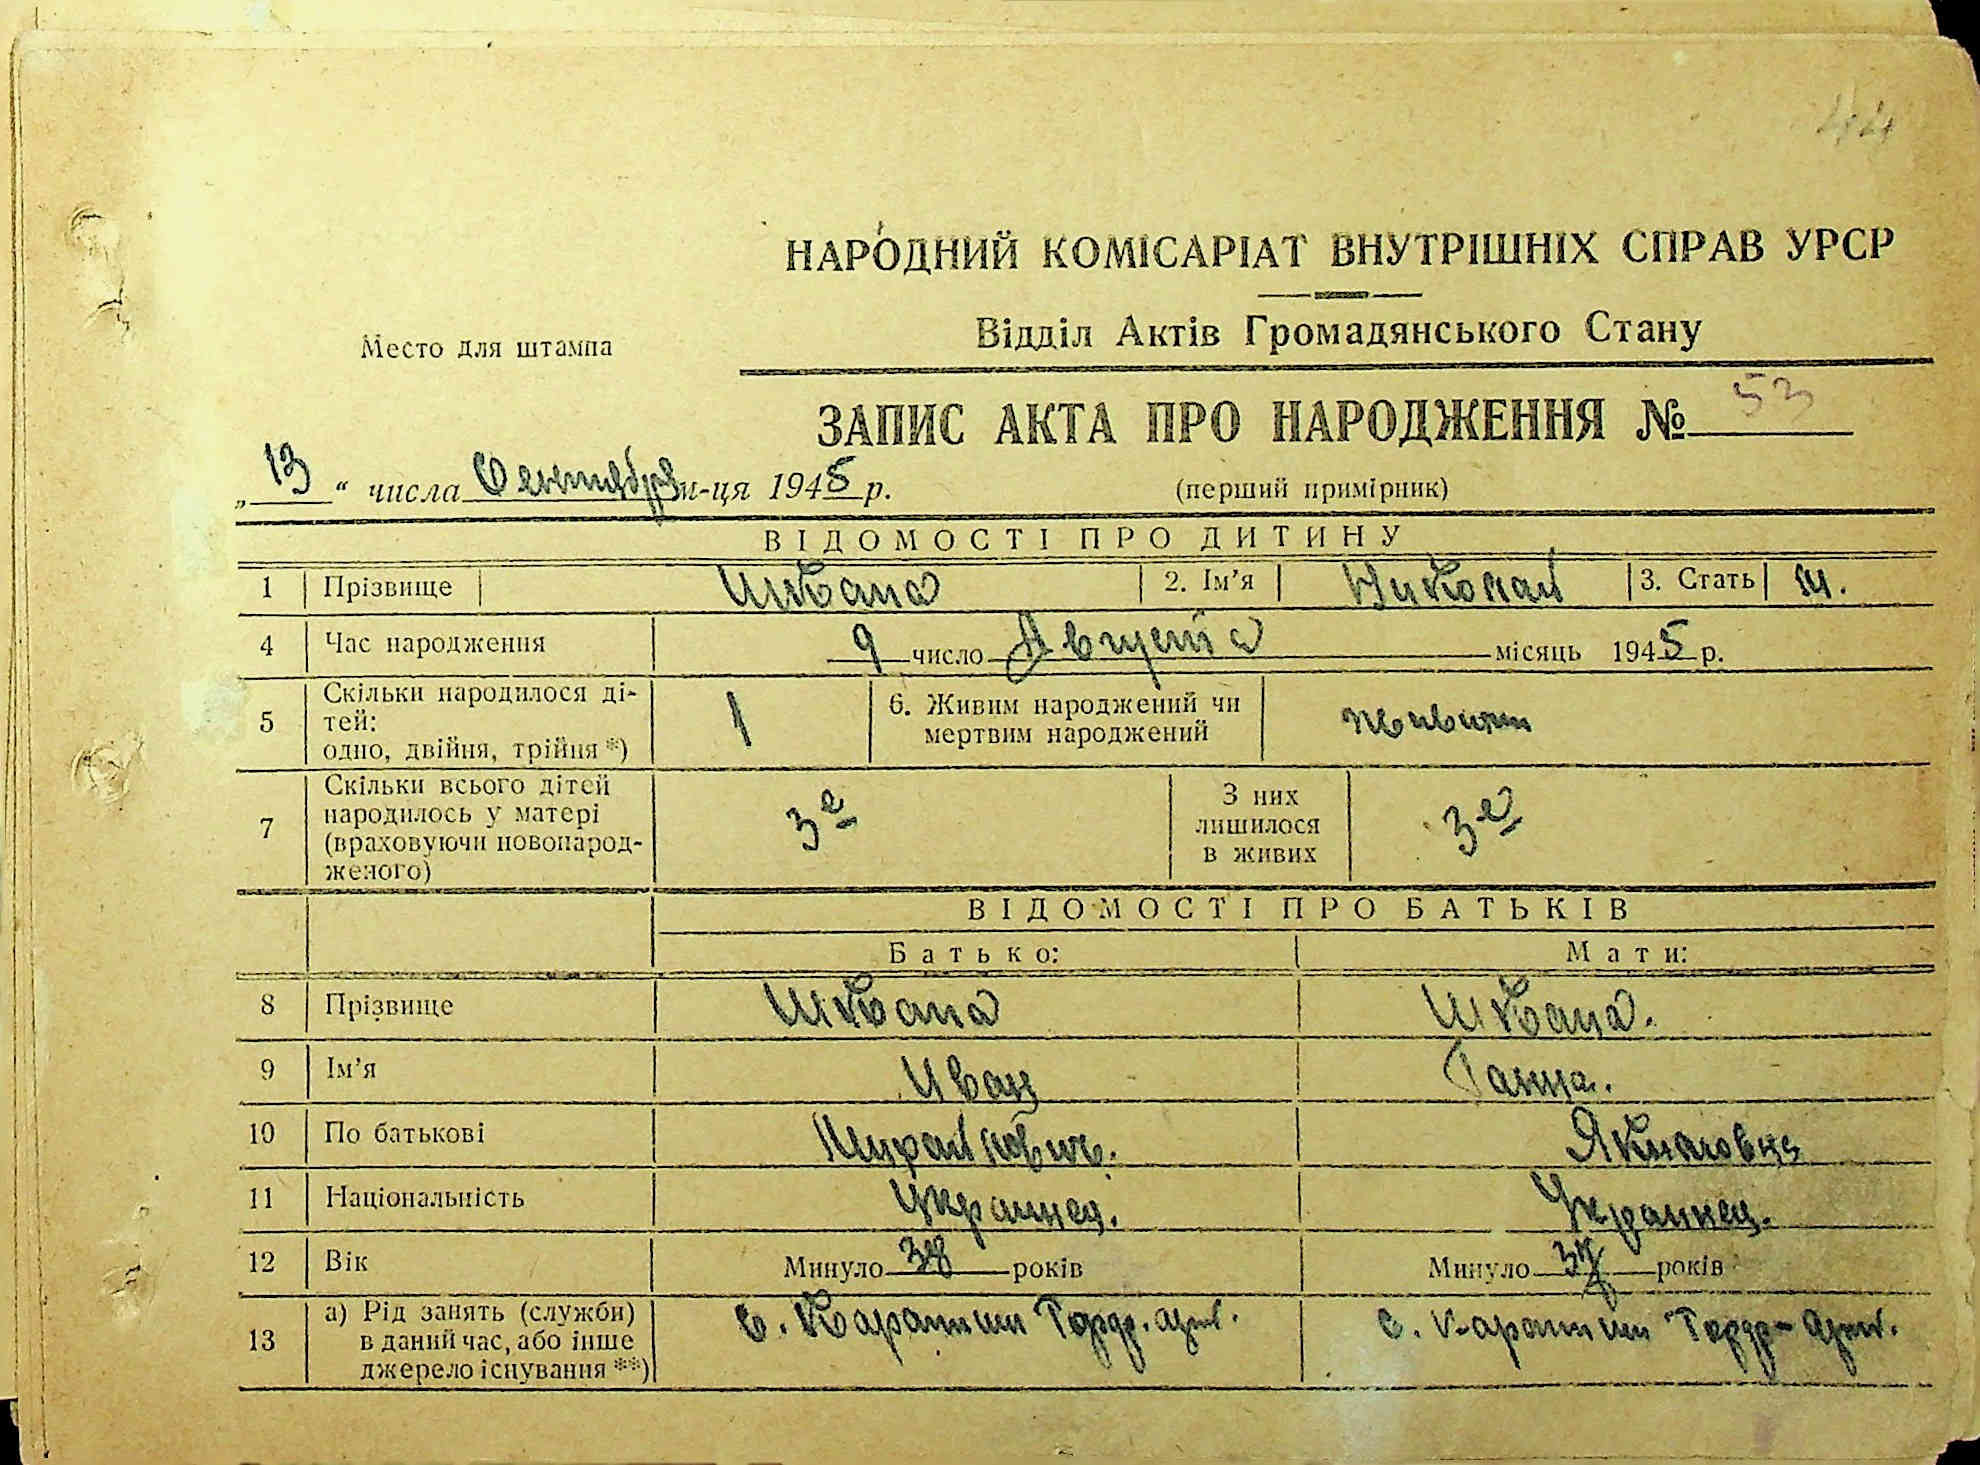 44
НАРОДНИЙ КОМІСАРІАТ ВНУТРІШНІХ СПРАВ УРСР
Відділ Актів Громадянського Стану
Место для штампа
ЗАПИС АКТА ПРО НАРОДЖЕННЯ № 53
„13“ числа Сентября м-ця 1945 р.
(перший примірник)
ВІДОМОСТІ ПРО ДИТИНУ
1 Прізвище Шквана 2. Ім’я Николай 3. Стать м.
4 Час народження 9 число Августа місяць 1945 р.
5 Скільки народилося ді-
тей:
одно, двійня, трійня *) 1
6. Живим народжений чи
мертвим народжений живим
7 Скільки всього дітей
народилось у матері
(враховуючи новонарод-
женого) 3е
З них
лишилося
в живих 3е
ВІДОМОСТІ ПРО БАТЬКІВ
Батько: Мати:
8 Прізвище Шквана Шквана.
9 Ім’я Иван Ганна.
10 По батькові Михайлович. Якимовна
11 Національність Украинец. Украинец.
12 Вік Минуло 38 років Минуло 37 років
13 а) Рід занять (служби)
в даний час, або інше
джерело існування **)
с. Карапиши с. Карапиши